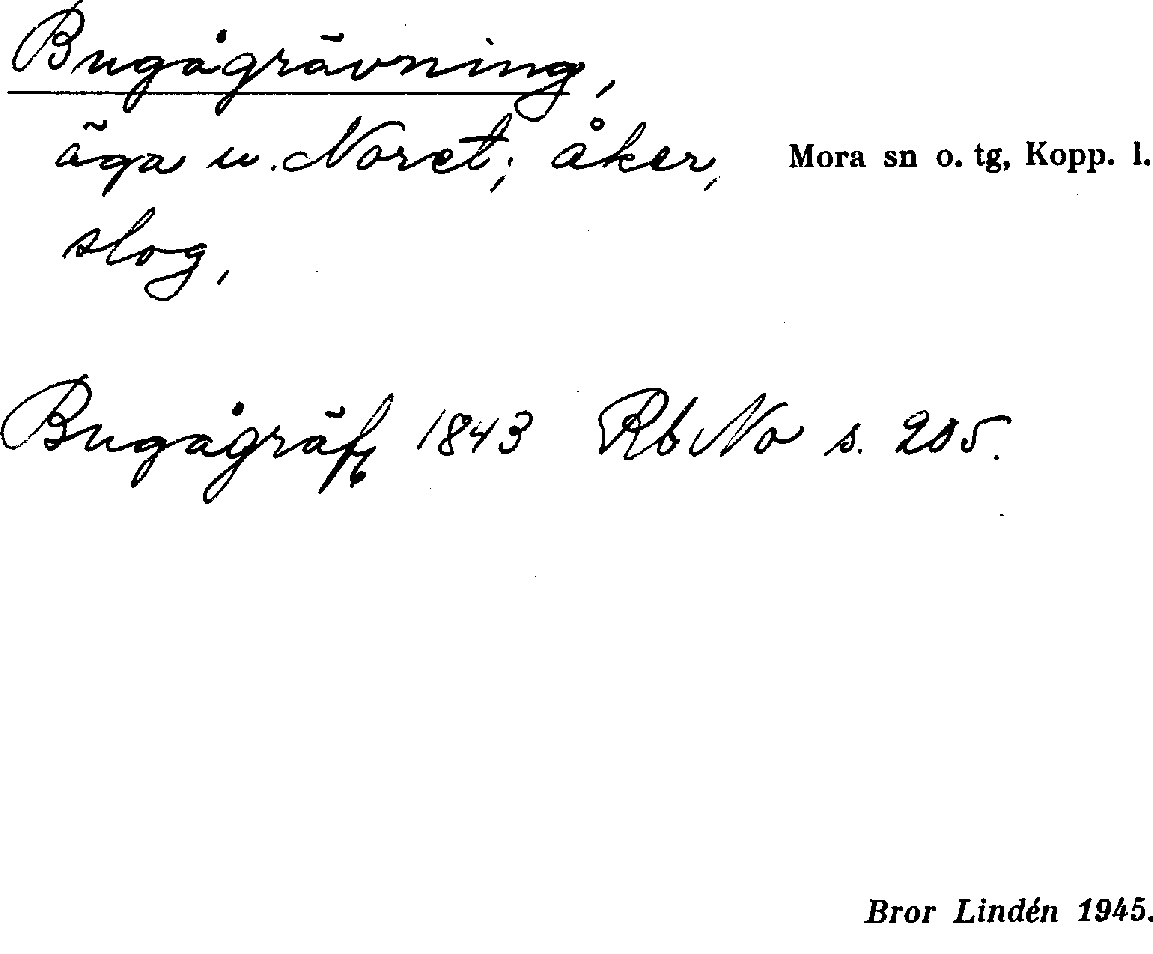 Bugågrävning,
äga u. Noret; åker, Mora sn o. tg, Kopp. l.
slog,
Bugågräfg 1843 Rb No s. 205.
Bror Lindén 1945.